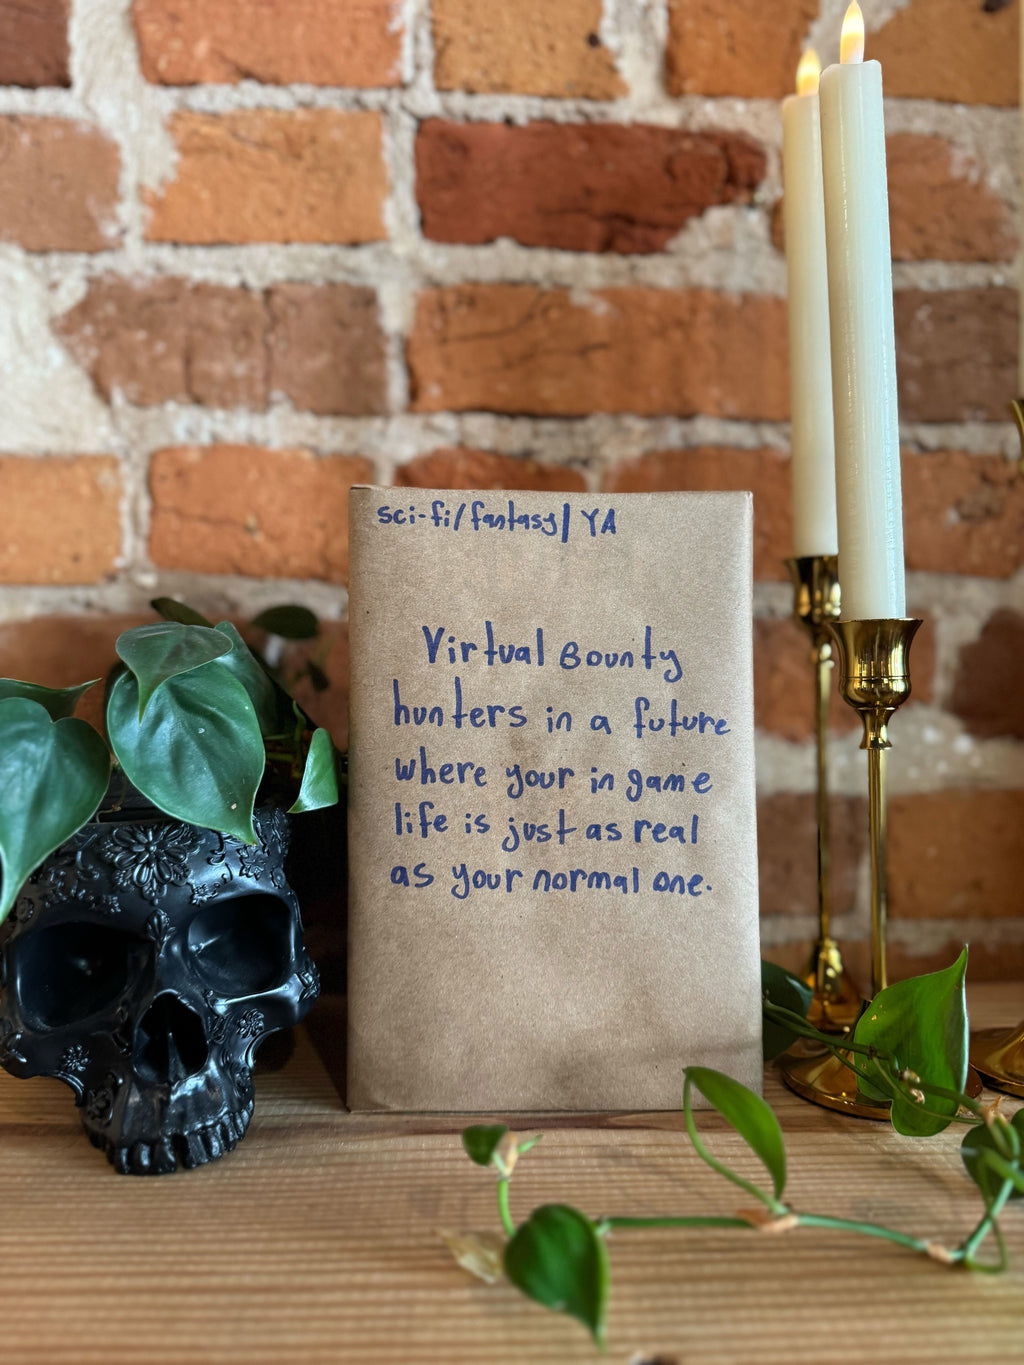 sci-fi/fantasy/YA
Virtual Bounty
hunters in a future
where your in game
life is just as real
as your normal one.